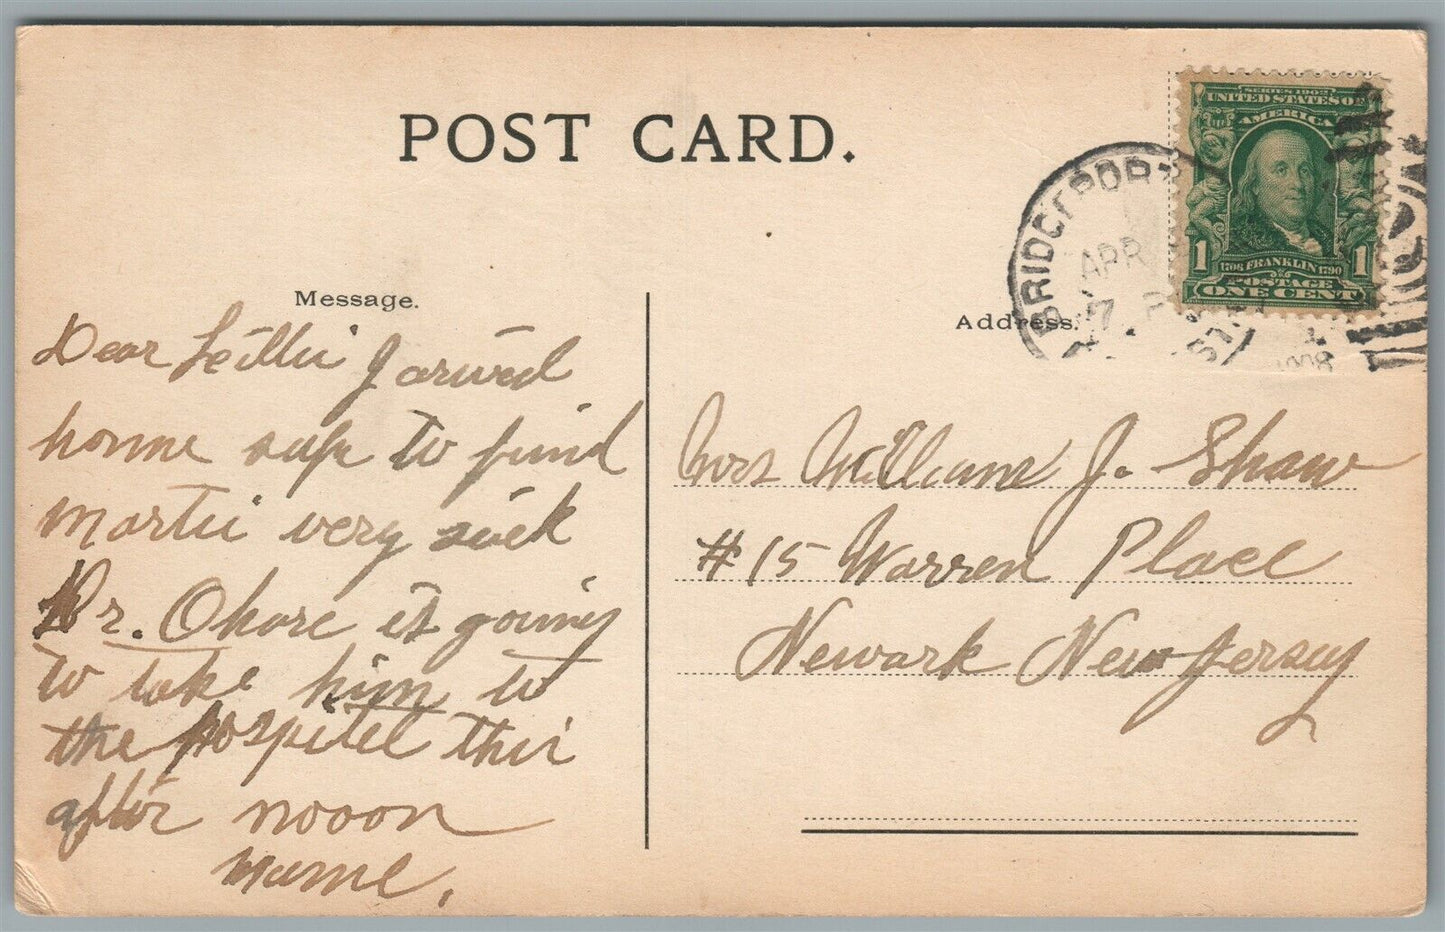 POST CARD.
SERIES 1902
UNITED STATES OF
AMERICA
1 1
1706 FRANKLIN 1790
POSTAGE
ONE CENT
BRIDGEPOR
APR
7 P
ST.
1908
Message.
Address.
Dear I arived
home safe to find
Martie very sick
Dr. Ohare is going
to take him to
the hospitel this
after nooon
Mame.
Mrs William J. Shaw
#15 Warren Place
Newark New Jersey